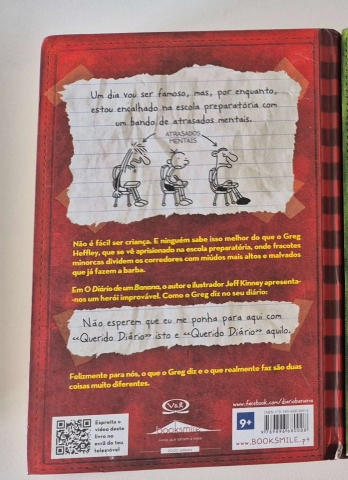 Um dia vou ser famoso, mas, por enquanto,
estou encalhado na escola preparatória com
um bando de atrasados mentais.
ATRASADOS
MENTAIS
Não é fácil ser criança. E ninguém sabe isso melhor do que o Greg
Heffley, que se vê aprisionado na escola preparatória, onde fracotes
minorcas dividem os corredores com miúdos mais altos e malvados
que já fazem a barba.
Em O Diário de um Banana, o autor e ilustrador Jeff Kinney apresenta-
-nos um herói improvável. Como o Greg diz no seu diário:
Não esperem que eu me ponha para aqui com
«Querido Diário» isto e «Querido Diário» aquilo.
Felizmente para nós, o que o Greg diz e o que realmente faz são duas
coisas muito diferentes.
V&R
booksmile
Espreita o
vídeo deste
livro no
ecrã do teu
telemóvel
www.facebook.com/diariobanana
9+
www.BOOKSMILE.pt